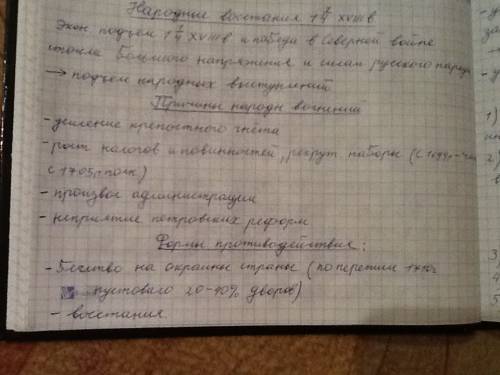 Народные восстания 1/4 XVIII в
Экон. подъем 1/4 XVIII в и победа в Северной войне
стоила большого напряжения и силам русского народа
→ подъем народных выступлений
Причины народн волнений
- усиление крепостного гнёта
- рост налогов и повинностей, рекрут. наборы (с 1699-
с 1705г пост)
- произвол администрации
- неприятие петровских реформ
Формы противодействия:
- Бегство на окраины страны (по переписи 1710г
пустовало 20-40% дворов)
- восстания.
1)
2)
3)
4
5